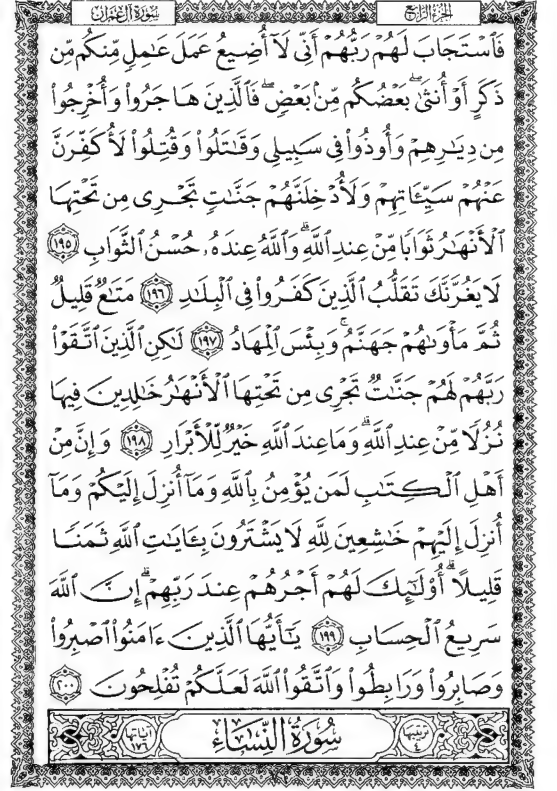 الجزء الرابع
سورة آل عمران
فَٱسْتَجَابَ لَهُمْ رَبُّهُمْ أَنِّى لَآ أُضِيعُ عَمَلَ عَٰمِلٍ مِّنكُم مِّن
ذَكَرٍ أَوْ أُنثَىٰ ۖ بَعْضُكُم مِّنۢ بَعْضٍ ۖ فَٱلَّذِينَ هَاجَرُوا۟ وَأُخْرِجُوا۟
مِن دِيَٰرِهِمْ وَأُوذُوا۟ فِى سَبِيلِى وَقَٰتَلُوا۟ وَقُتِلُوا۟ لَأُكَفِّرَنَّ
عَنْهُمْ سَيِّـَٔاتِهِمْ وَلَأُدْخِلَنَّهُمْ جَنَّٰتٍ تَجْرِى مِن تَحْتِهَا
ٱلْأَنْهَٰرُ ثَوَابًا مِّنْ عِندِ ٱللَّهِ ۗ وَٱللَّهُ عِندَهُۥ حُسْنُ ٱلثَّوَابِ ١٩٥
لَا يَغُرَّنَّكَ تَقَلُّبُ ٱلَّذِينَ كَفَرُوا۟ فِى ٱلْبِلَٰدِ ١٩٦ مَتَٰعٌ قَلِيلٌ
ثُمَّ مَأْوَىٰهُمْ جَهَنَّمُ ۚ وَبِئْسَ ٱلْمِهَادُ ١٩٧ لَٰكِنِ ٱلَّذِينَ ٱتَّقَوْا۟
رَبَّهُمْ لَهُمْ جَنَّٰتٌ تَجْرِى مِن تَحْتِهَا ٱلْأَنْهَٰرُ خَٰلِدِينَ فِيهَا
نُزُلًا مِّنْ عِندِ ٱللَّهِ ۗ وَمَا عِندَ ٱللَّهِ خَيْرٌ لِّلْأَبْرَارِ ١٩٨ وَإِنَّ مِنْ
أَهْلِ ٱلْكِتَٰبِ لَمَن يُؤْمِنُ بِٱللَّهِ وَمَآ أُنزِلَ إِلَيْكُمْ وَمَآ
أُنزِلَ إِلَيْهِمْ خَٰشِعِينَ لِلَّهِ لَا يَشْتَرُونَ بِـَٔايَٰتِ ٱللَّهِ ثَمَنًا
قَلِيلًا ۗ أُو۟لَٰٓئِكَ لَهُمْ أَجْرُهُمْ عِندَ رَبِّهِمْ ۗ إِنَّ ٱللَّهَ
سَرِيعُ ٱلْحِسَابِ ١٩٩ يَٰٓأَيُّهَا ٱلَّذِينَ ءَامَنُوا۟ ٱصْبِرُوا۟
وَصَابِرُوا۟ وَرَابِطُوا۟ وَٱتَّقُوا۟ ٱللَّهَ لَعَلَّكُمْ تُفْلِحُونَ ٢٠٠
ترتيبها ٤ سُورَةُ النِّسَاء آياتها ١٧٦